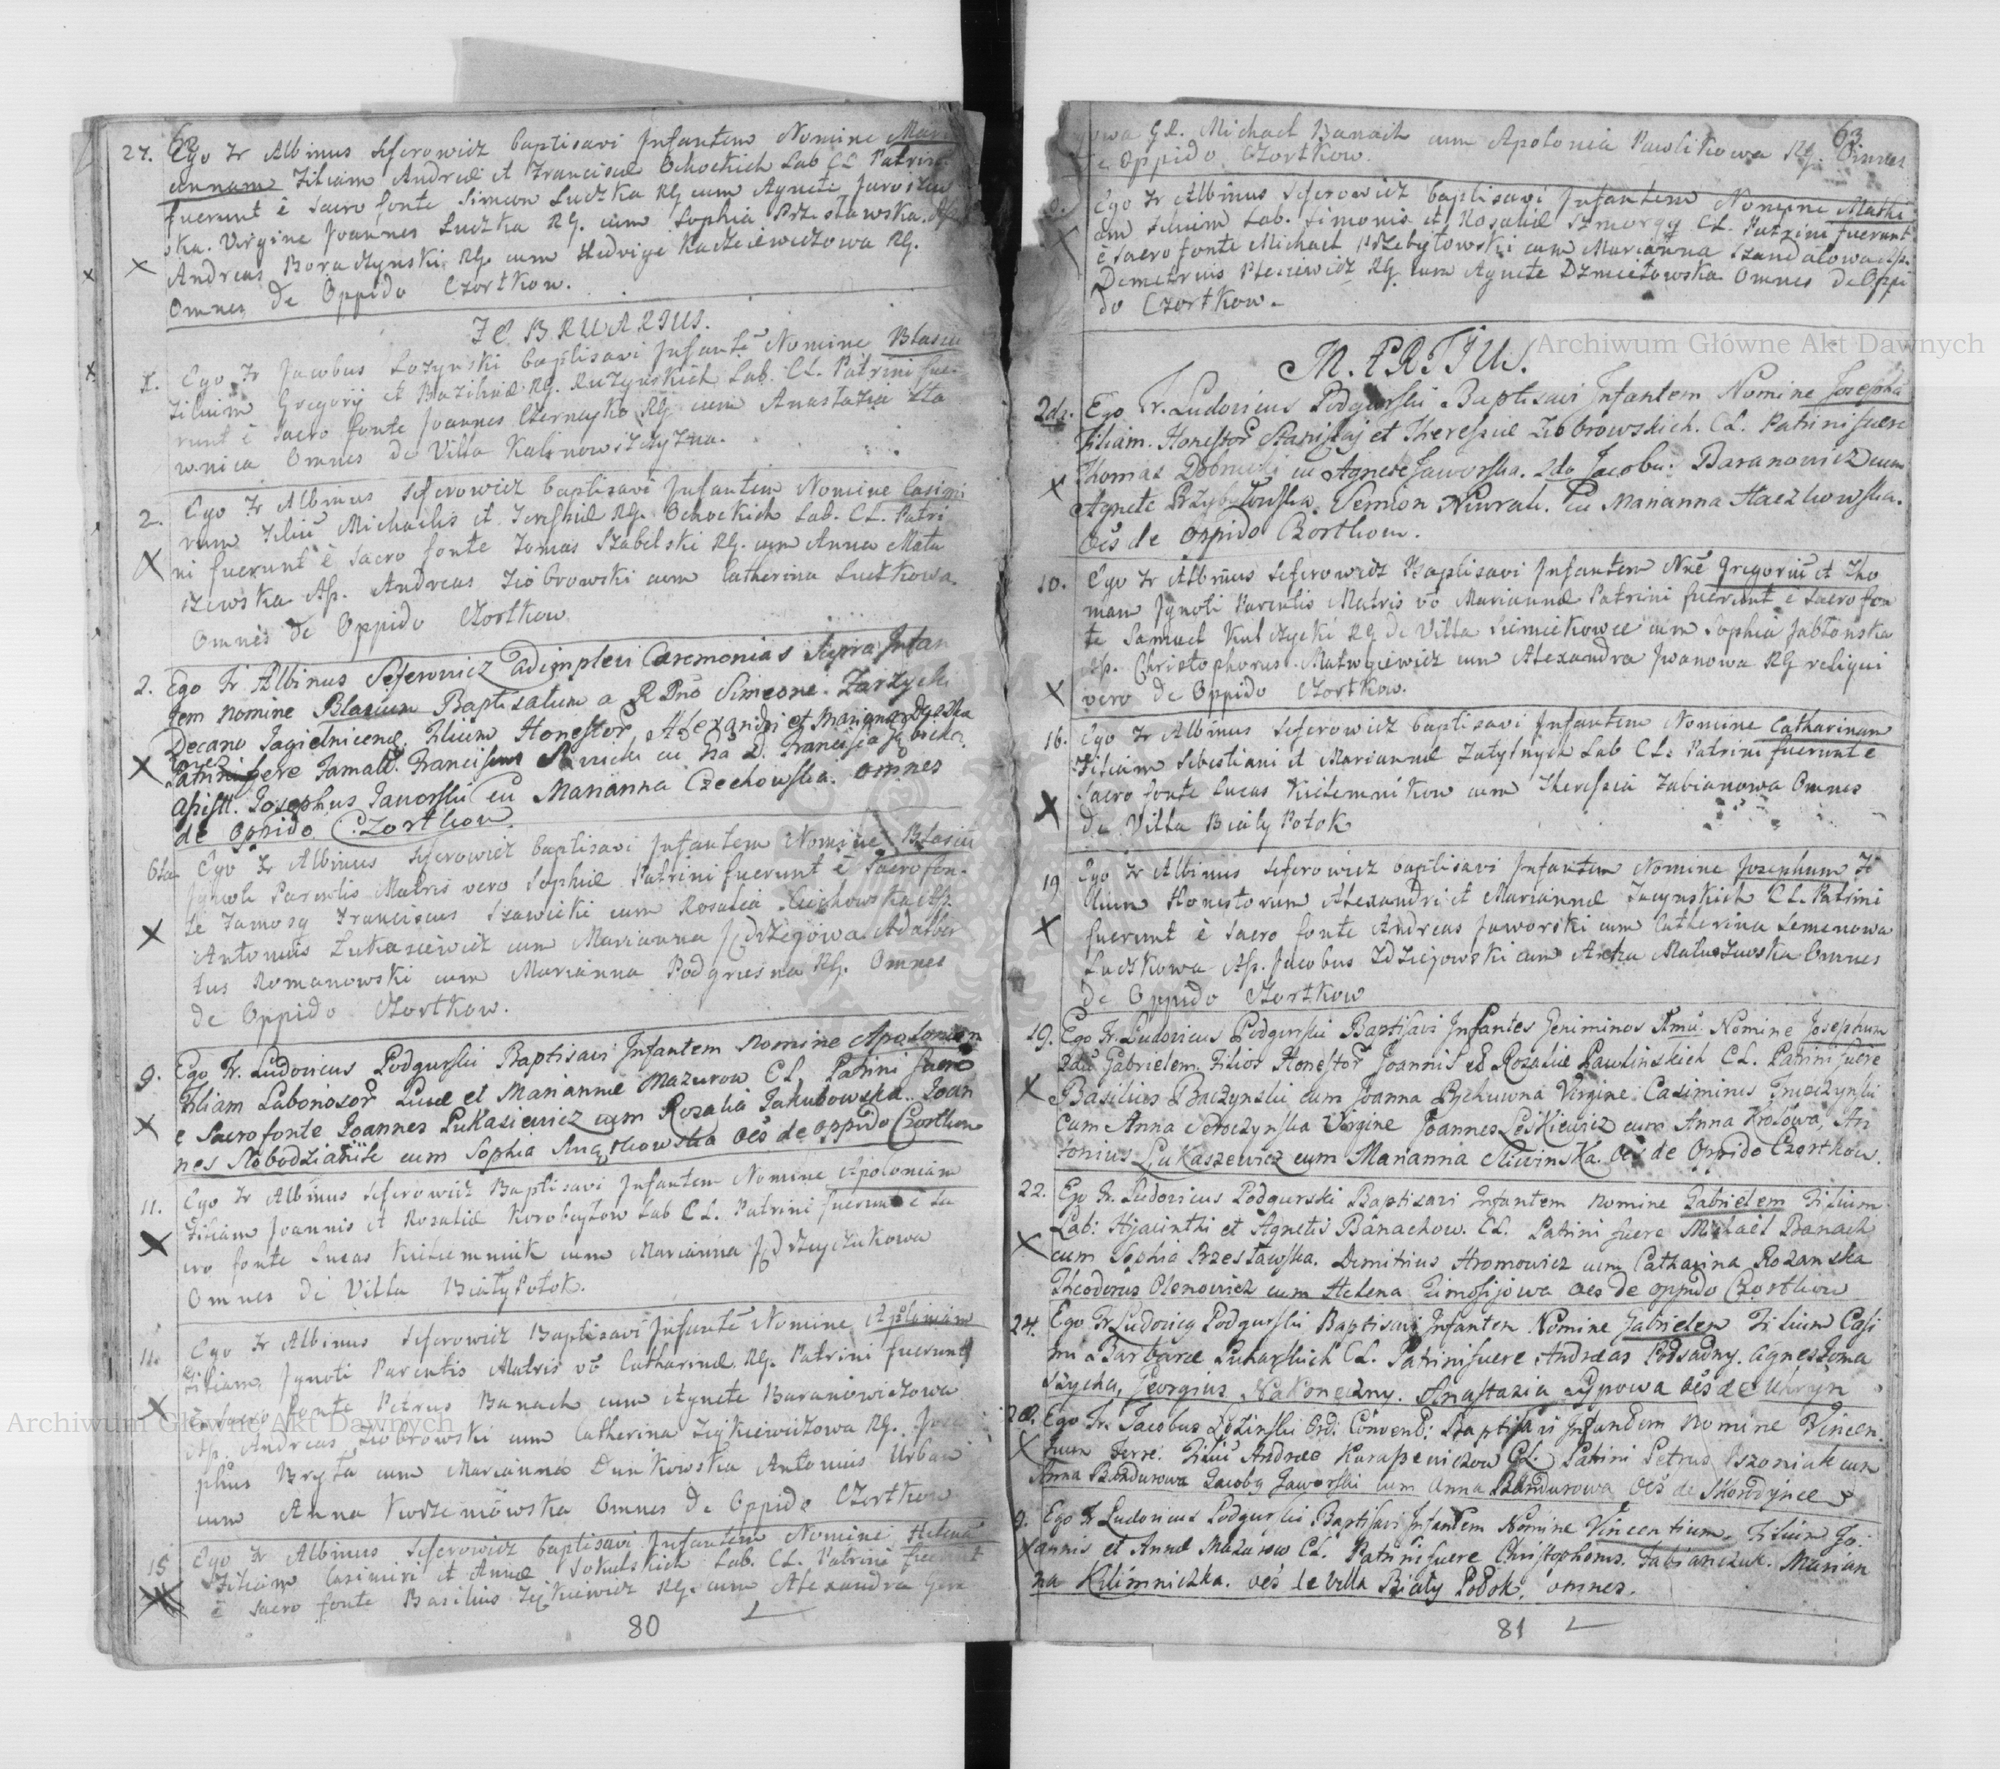 62
27. Ego Fr Albinus Seferowicz baptisavi Infantem Nomine Mari
annam Filiam Andreæ et Franciscæ Ochockich Lab CL Patrini
fuerunt è sacro fonte Simeon Luczka RG cum Agnete Jaroszew
ska. Virgine Joannes Luczka RG. cum Sophia Przesławska.
Andreas Boraczynski RG. cum Hedvige Kaczciewiczowa RG.
Omnes de Oppido Czortkow.
FEBRUARIUS.
1. Ego Fr Jacobus Łozynski baptisavi Infantē Nomine Blasiū
Filium Gregorij et Baziliæ RG. Ruzynskich Lab. CL. Patrini fue-
runt è sacro fonte Joannes Czernayko RG cum Anastazia Sta
wnica Omnes de Villa Kalinowszczyzna.
2. Ego Fr Albinus Seferowicz baptisavi Infantem Nomine Casimi
rum Filiū Michaelis et Teressiæ RG. Ochockich Lab. CL. Patri
ni fuerunt è sacro fonte Tomas Szabelski RG. cum Anna Matu
szewska Ap. Andreas Ziobrowski cum Catherina Luczkowa.
Omnes de Oppido Czortkow
2. Ego Fr Albinus Seferowicz adimplevi Ceremonias supra Infan
tem Nomine Blasium Baptisatum a R Dno Simeone Zarzycki
Decano Jagielnicenē, Filium Honestor Alexandri et Marianna
Patrini fuere Famatt. Franciscus cu Francisca
Assistt. Josephus Jaworski cū Marianna Czechowska. omnes
de oppido Czortkow.
6ta Ego Fr Albinus Seferowicz baptisavi Infantem Nomine Blasiū
Ignoti Parentis Matris vero Sophiæ Patrini fuerunt è Sacro fon-
te Famosq Franciscus Szawicki cum Rosalia Ciechowska Ap.
Antonius Łukasiewicz cum Marianna Jędrzejowa. Adalber
tus Romanowski cum Marianna Podgriesna RG. Omnes
de Oppido Czortkow.
9. Ego Fr. Ludovicus Podgurski Baptisavi Infantem Nomine Apolonian
Filiam Laboriosor Lucæ et Mariannæ Mazurow CL. Patrini fuere
e Sacro fonte Joannes Łukasiewicz cum Rosalia Jakubowska. Joan
nes Nobodzianik cum Sophia oēs de oppido Czortkow
11. Ego Fr Albinus Seferowicz Baptisavi Infantem Nomine Apoloniam
Filiam Joannis et Rozaliæ Korobaytow Lab CL. Patrini fuerunt è Sa
cro fonte Lucas Kiliemnnik cum Marianna Jędrzyczukowa
Omnes de Villa Biały Potok.
14. Ego Fr Albinus Seferowicz Baptisavi Infantē Nomine Apoloniam
Filiam Ignoti Parentis Matris vō Catharinæ RG. Patrini fuerunt
è Sacro fonte Petrus Banach cum Agnete Baranowiczowa
Ap. Andreas Ziobrowski cum Catherina Ziękiewiczowa RG. Jose
phus Bryła cum Marianna Dunikowska Antonius Urban
cum Anna Korzeniowska Omnes de Oppido Czortkow
15 Ego Fr Albinus Seferowicz baptisavi Infantem Nomine Helenā
Filiam Casimiri et Annæ Sokulskich Lab. CL. Patrini fuerunt
è Sacro fonte Basilius Ziękiewicz RG. cum Alexandra Gere
80
63
gowa GL. Michael Banach cum Apolonia Pawlikowa RG. Omnes
de Oppido Czortkow.
Ego Fr Albinus Seferowicz baptisavi Infantem Nomine Mathi
am Filium Lab. Simonis et Rosaliæ Szmorgy CL. Patrini fuerunt
è Sacro fonte Michael Przebyłowski cum Marianna Szandałowa Ap.
Demetrius RG. cum Agnete Dzmielowska Omnes de Oppi
do Czortkow.
MARTIUS.
2da. Ego Fr. Ludovicus Podgurski Baptisavi Infantem Nomine Josephā
Filiam. Honestor Stanislaj et Theressiæ Ziobrowskich. CL. Patrini fuere
Thomas Dobrucki cū Agnete Jaworska. 2do Jacobu: Baranowicz cum
Agnete Przybyłowska. Semion Niurah. cū Marianna Haczkowska.
Oēs de oppido Czortkow.
10. Ego Fr Albinus Seferowicz Baptisavi Infantem Nnē Gregoriū et Tho
man Ignoti Parentis Matris vō Mariannæ Patrini fuerunt è Sacro fon
te Samuel Kulczycki RG de Villa Siemiekowce cum Sophia Jabłonska
Ap. Christophorus Matwieiewicz cum Alexandra Iwanowa RG reliqui
vero de Oppido Czortkow.
16. Ego Fr Albinus Seferowicz baptisavi Infantem Nomine Catharinam
Filiam Sebestiani et Mariannæ Zatylnych Lab CL. Patrini fuerunt è
Sacro fonte Lucas Kielemnikow cum Theressia Fabianowa Omnes
de Villa Biały Potok
19 Ego Fr Albinus Seferowicz baptisavi Infantem Nomine Josephum Fi
lium Honestorum Alexandri et Mariannæ Zuzynskich CL. Patrini
fuerunt è Sacro fonte Andreas Jaworski cum Catherina Semenowa
Luczkowa Ap. Jacobus Zdziejowski cum Anna Matuszewska Omnes
de Oppido Czortkow
19. Ego Fr. Ludovicus Podgurski Baptisavi Infantes Geniminos Imū Nomine Josephum
2dū Gabrielem. Filios Honestor Joannis ed Rozaliæ Pawlinskich CL. Patrini fuere
Basilius Baczynski cum Joanna Pychuwna Virgine. Casimirus Truszynski
cum Anna Soroczynska Virgine Joannes Leskiewicz cum Anna Krosowa, An
tonius Łukaszewicz cum Marianna Sliwinska. oēs de Oppido Czortkow.
22. Ego Fr. Ludovicus Podgurski Baptisavi Infantem Nomine Gabrielem Filium
Lab: Hyacinthi et Agnetis Banachow. CL. Patrini fuere Michael Banach
cum Sophia Przesławska. Dimitrius Hromowicz cum Catharina Rozanska
Theodorus Olenowicz cum Helena Timofijowa oes de oppido Czortkow
24. Ego Fr Ludovicq Podgurski Baptisavi Infantem Nomine Gabrielem Filium Casi
mi Barbaræ Puharskich CL. Patrini fuere Andreas Possadny. Agnes Toma
szycha, Georgius Nakoneczny. Anastazia Lypowa oēs de Uhryn
28. Ego Fr. Jacobus Łozinski Ord: Convend: Baptisavi Infandem Nomine Vincen
tium Ferre: Filiū Andreæ Karapewiczow CL. Patrini Petrus Pszoniak cum
Anna Bondurowa Jacobq Jaworski cum Anna Bandurowa oēs de Skorodynce
9. Ego Fr Ludovicus Podgurski Baptisavi Infantem Nomine Vincentium. Filium Jo:
annis et Annæ Mazurow CL. Patrini fuere Christophorus. Fabianczuk. Marian
na Kilimniczka. oēs de villa Biały Potok. omnes.
81
Archiwum Główne Akt Dawnych
Archiwum Główne Akt Dawnych